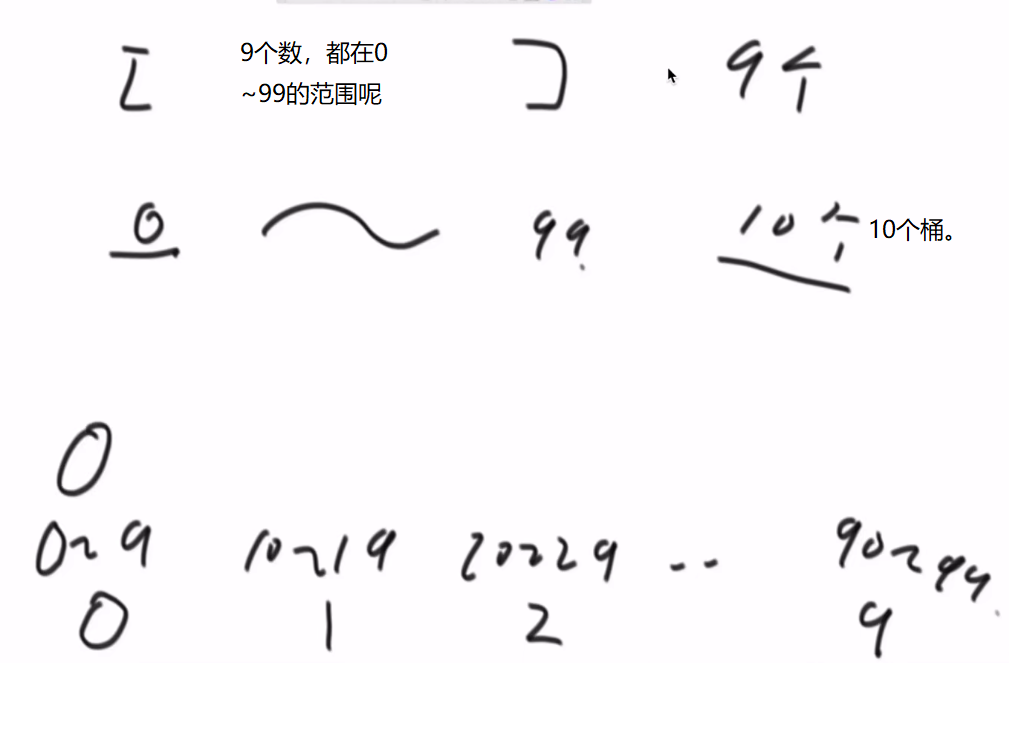 [ 9个数，都在0 ] 9个
~99的范围呢
0 ~ 99. 10个 10个桶。
0
0~9 10~19 20~29 .. 90~99.
0 1 2 9